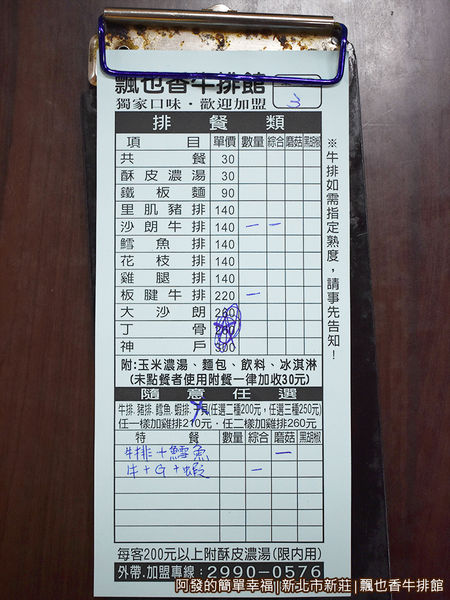 飄也香牛排館
獨家口味・歡迎加盟
3
排餐類
項目 單價 數量 綜合 磨菇 黑胡椒
共餐 30
酥皮濃湯 30
鐵板麵 90
里肌豬排 140
沙朗牛排 140 一 一
鱈魚排 140
花枝排 140
雞腿排 140
板腱牛排 220 一
大沙朗 260
丁骨
神戶 300
※牛排如需指定熟度，請事先告知！
附:玉米濃湯、麵包、飲料、冰淇淋
(未點餐者使用附餐一律加收30元)
隨意任選
牛排.豬排.鱈魚.蝦排.(任選二種200元，任選三種250元)
任一樣加雞排210元．任二樣加雞排260元
特餐 數量 綜合 磨菇 黑胡椒
牛排+鱈魚 一
牛+G+蝦 一
每客200元以上附酥皮濃湯(限內用)
外帶.加盟專線：2990-0576
阿發的簡單幸福|新北市新莊|飄也香牛排館